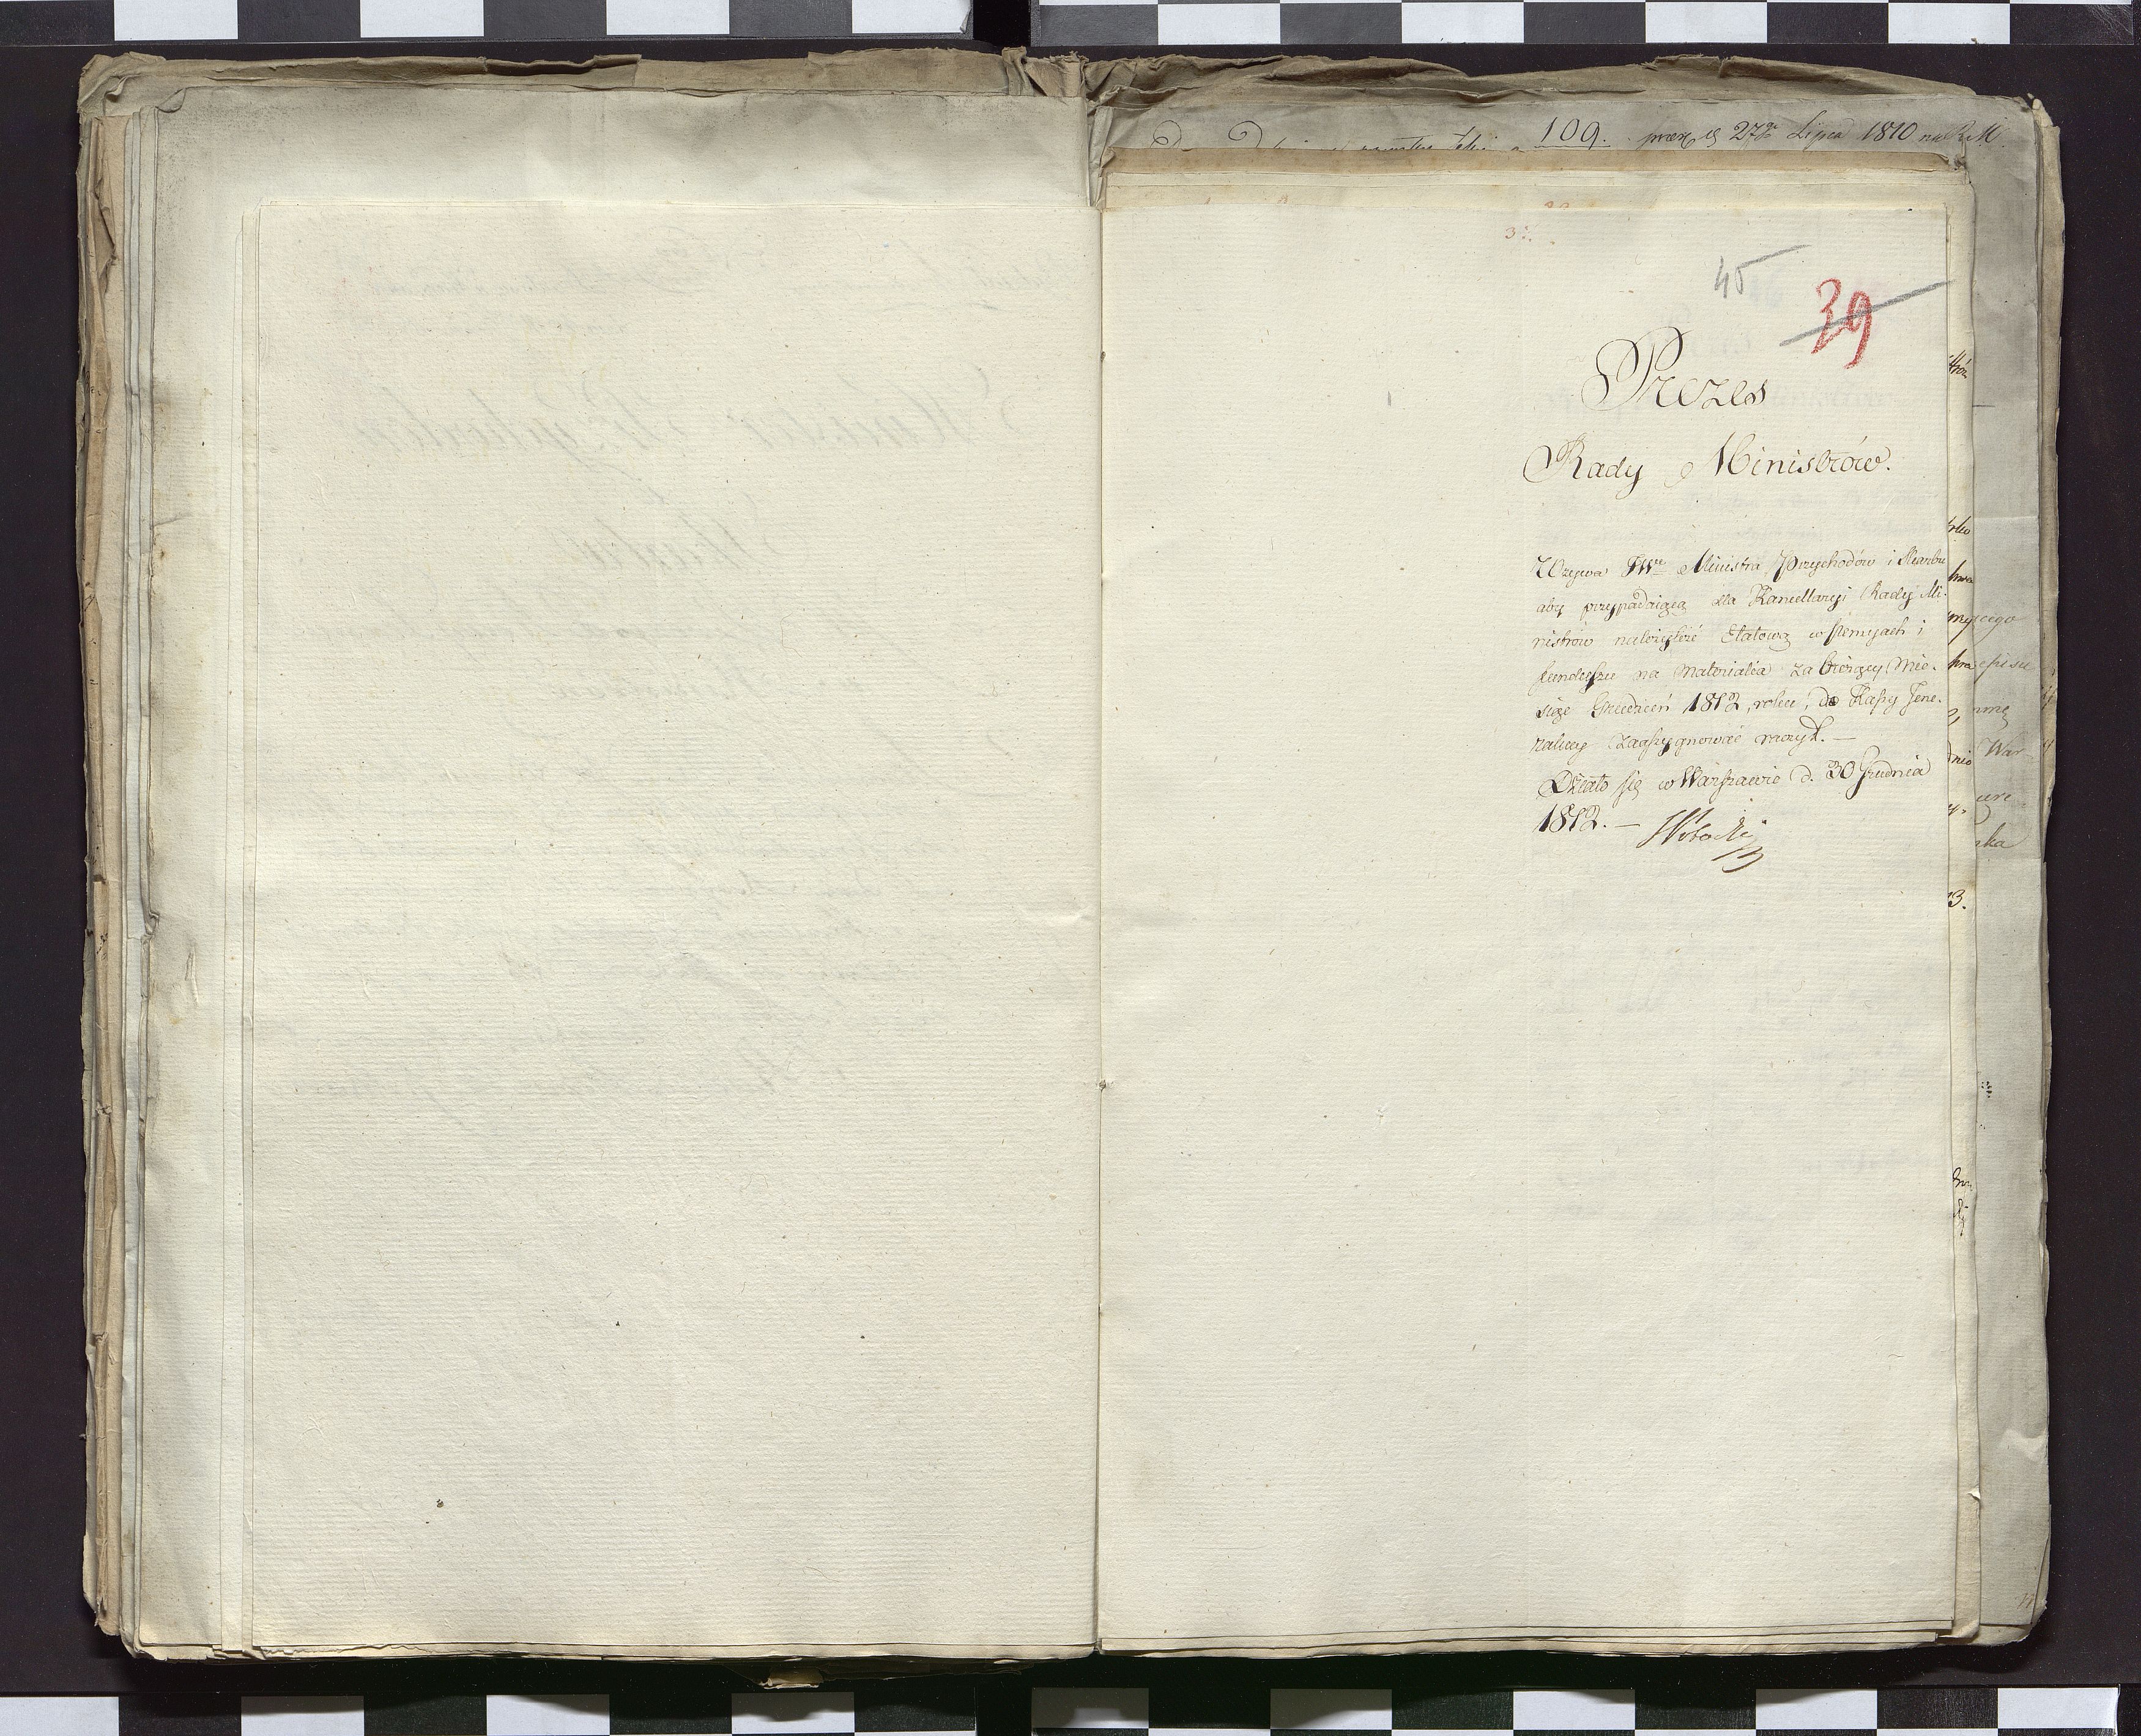 109. 27go Lipca 1810
45
39
Prezes
Rady Ministrów.
Wzywa JWo Ministra Przychodów i Skarbu
aby przypadaiącą dla Kancellaryi Rady Mi-
nistrów należytość Etatową w pensyach i
funduszu na materialia za bieżący Mie-
siąc Grudzień 1812, roku, do Kassy Jene-
ralney zaassygnować raczył. —
Działo się w Warszawie d. 30 Grudnia
1812. —